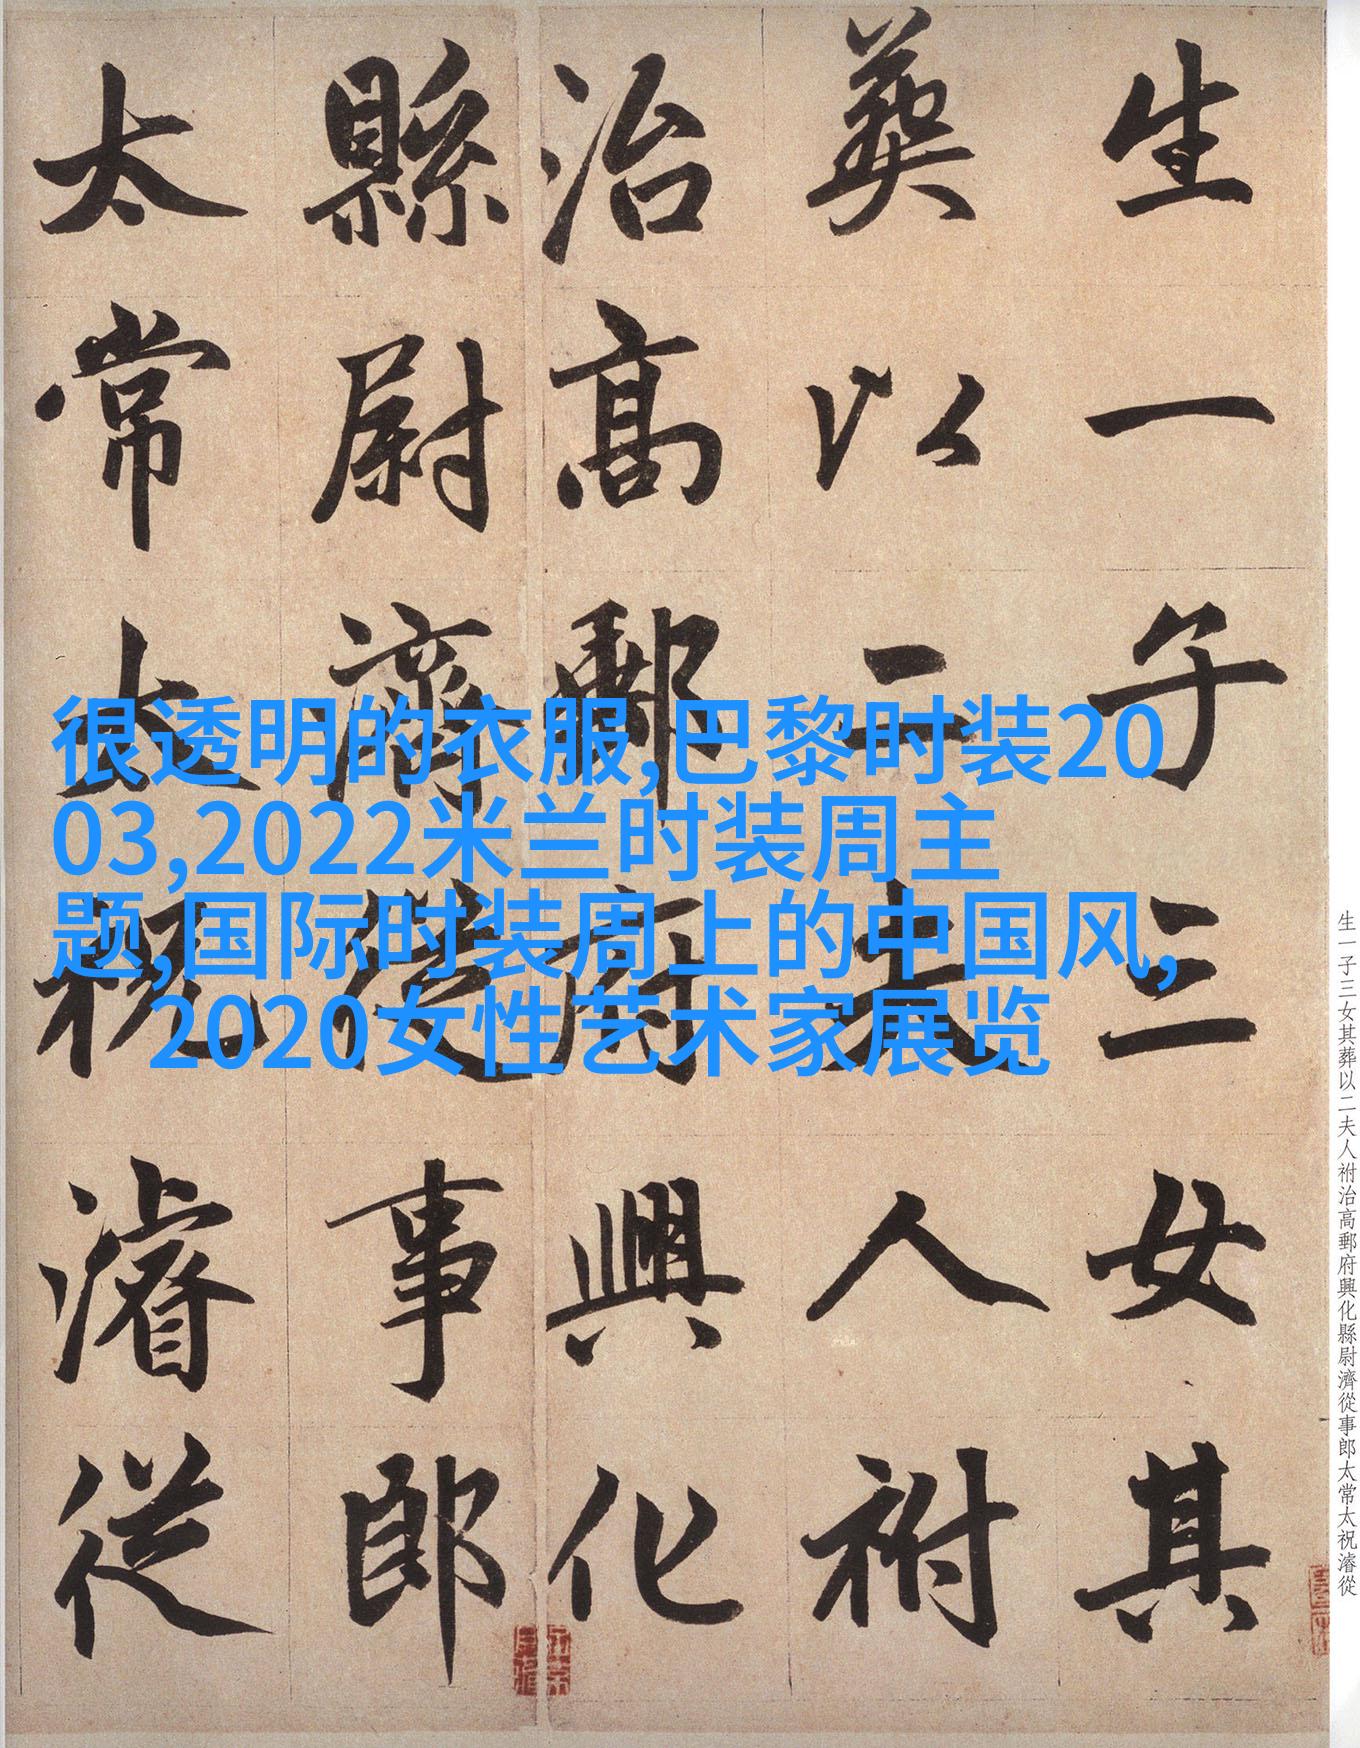 生一子三女其
葬以二夫人祔
治高郵府興化
縣尉濟從事郎
太常太祝濬從
很透明的衣服,巴黎时装20
03,2022米兰时装周主
题,国际时装周上的中国风,
2020女性艺术家展览
生一子三女其葬以二夫人祔治高郵府興化縣尉濟從事郎太常太祝濬從